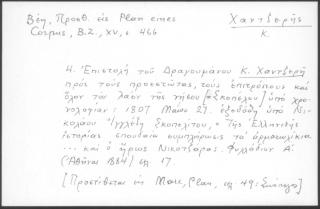 Βέη, Προσθ. εἰς Plan eines
Corpus, B.Z., XV, σ. 466
Χαντζερῆς
Κ.
4. Ἐπιστολὴ τοῦ Δραγουμάνου Κ. Χαντζερῆ
πρὸς τοὺς προεστῶτας, τοὺς ἐπιτρόπους καὶ
ὅλον τὸν λαὸν τῆς νήσου [Σκοπέλου] ὑπὸ χρο-
νολογίαν: 1807 Μαΐου 27. ἐξεδόθη ὑπὸ Νι-
κολάου Ἀγγελῆ Σκοπελίτου, «Τῆς Ἑλληνικῆς
ἱστορίας σπουδαία συμπλήρωσις τὰ ἁρματωλίκια
... καὶ ὁ ἥρως Νικοτσάρας. Φυλλάδιον Α.
(Ἀθῆναι 1884) σ. 17.
[Προστίθεται εἰς Marc, Plan, σ. 49: Σκόπελος]